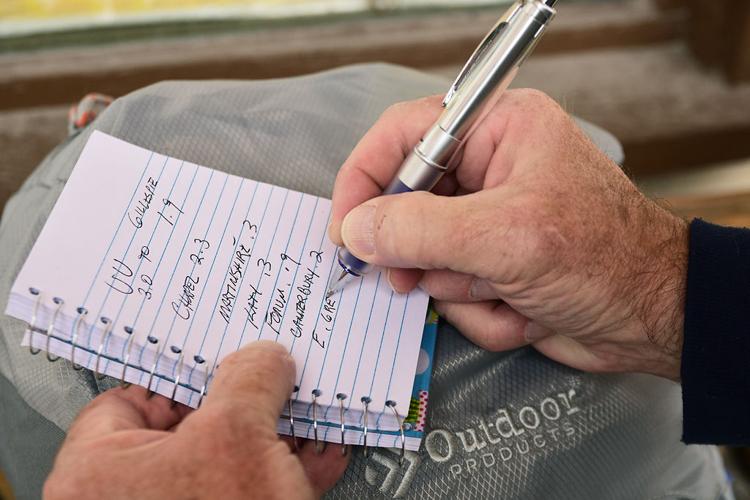 UU GILLESPIE
3.0 TO 1.9
CHAPEL 2.3
MARTINSHIRE .3
KATY .3
FORUM .9
CANTERBURY .2
E. GRE
Outdoor
PRODUCTS